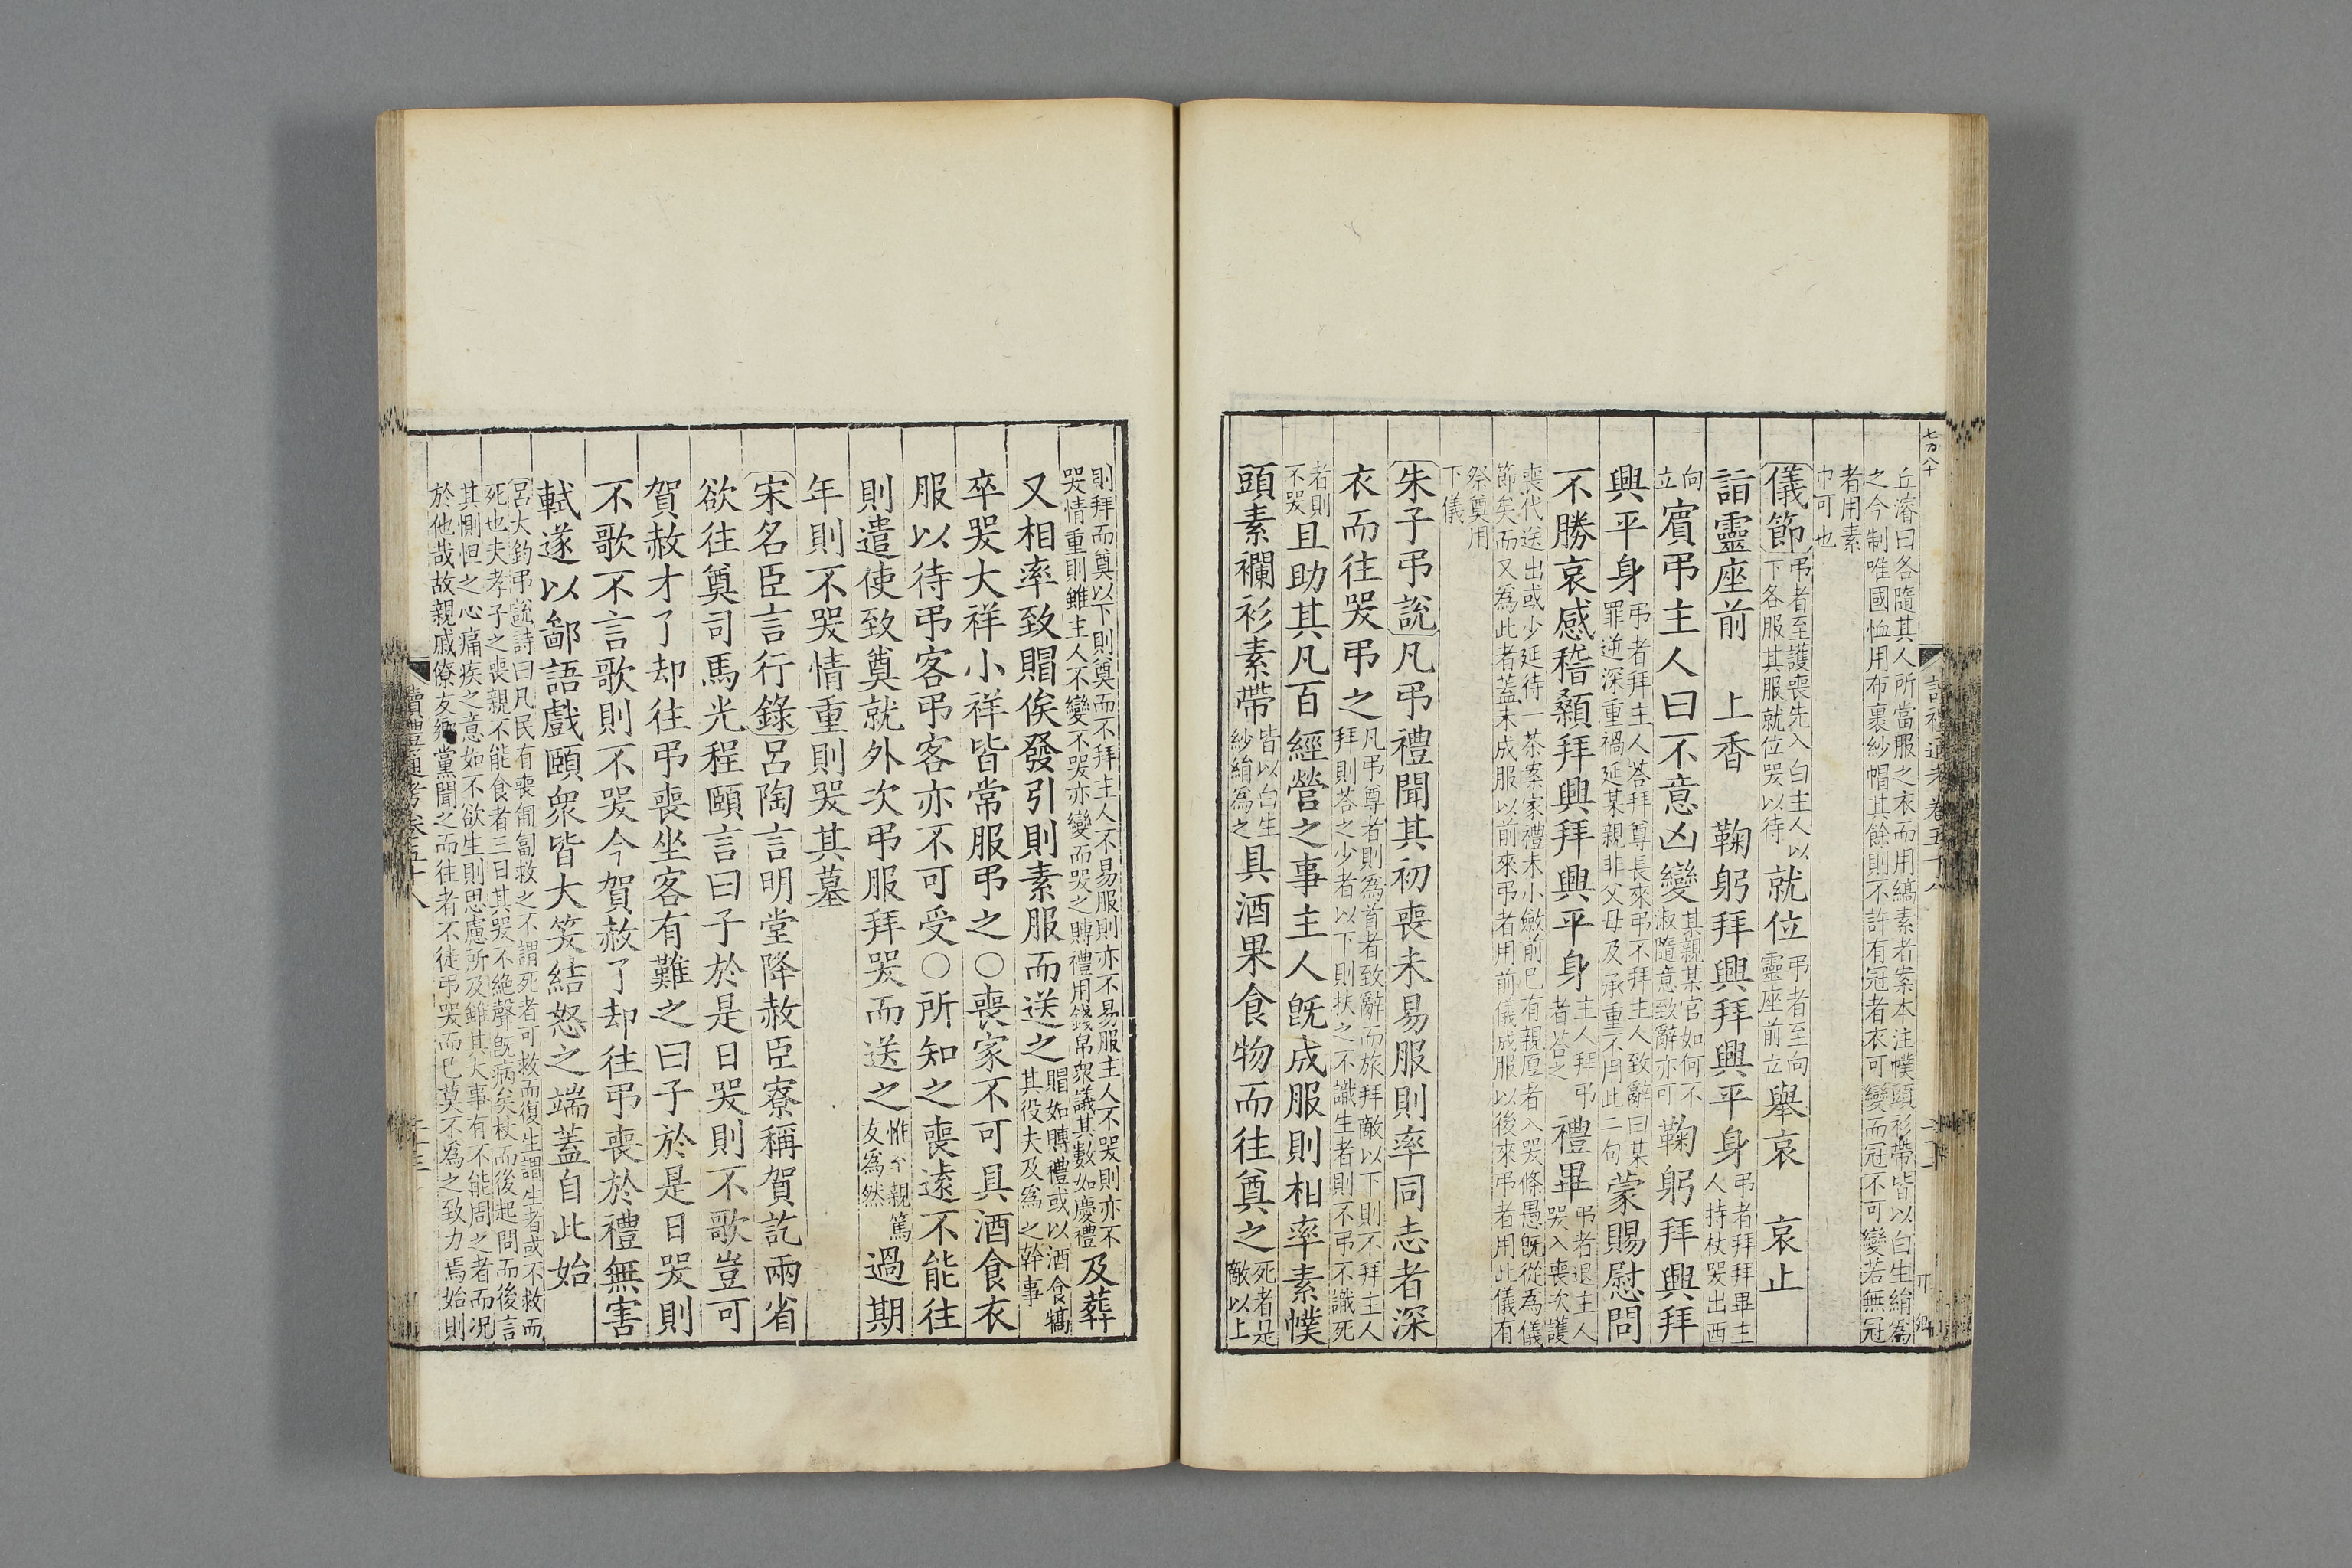 七万八十
丘濬曰各隨其人所當服之衣而用縞素者案本注幞頭衫帶皆以白生絹爲
之今制唯國恤用布裹紗帽其餘則不許有冠者衣可變而冠不可變若無冠
者用素
巾可也
儀節弔者至護喪先入白主人以下各服其服就位哭以待就位弔者至向靈座前立舉哀 哀止
詣靈座前 上香 鞠躬拜興拜興平身弔者拜拜畢主人持杖哭出西
向立賓弔主人曰不意凶變某親某官如何不淑隨意致辭亦可鞠躬拜興拜
興平身弔者拜主人荅拜尊長來弔不拜主人致辭曰某罪逆深重禍延某親非父母及承重不用此二句蒙賜慰問
不勝哀感稽顙拜興拜興平身主人拜弔者荅之禮畢弔者退主人哭入喪次護
喪代送出或少延待一茶案家禮未小斂前已有親厚者入哭條愚旣從為儀
節矣而又為此者蓋未成服以前來弔者用前儀成服以後來弔者用此儀有
祭奠用
下儀
朱子弔說凡弔禮聞其初喪未易服則率同志者深
衣而往哭弔之凡弔尊者則為首者致辭而旅拜敵以下則不拜主人拜則荅之少者以下則扶之不識生者則不弔不識死
者則不哭且助其凡百經營之事主人旣成服則相率素幞
頭素襴衫素帶皆以白生紗絹為之具酒果食物而往奠之死者是敵以上
則拜而奠以下則奠而不拜主人不易服則亦不易服主人不哭則亦不
哭情重則雖主人不變不哭亦變而哭之賻禮用錢帛衆議其數如慶禮及葬
又相率致賵俟發引則素服而送之賵如賻禮或以酒食犒其役夫及為之幹事
卒哭大祥小祥皆常服弔之○喪家不可具酒食衣
服以待弔客弔客亦不可受○所知之喪遠不能往
則遣使致奠就外次弔服拜哭而送之惟至親篤友為然過期
年則不哭情重則哭其墓
宋名臣言行錄呂陶言明堂降赦臣寮稱賀訖兩省
欲往奠司馬光程頤言曰子於是日哭則不歌豈可
賀赦才了却往弔喪坐客有難之曰子於是日哭則
不歌不言歌則不哭今賀赦了却往弔喪於禮無害
軾遂以鄙語戲頤衆皆大笑結怒之端蓋自此始
呂大鈞弔說詩曰凡民有喪匍匐救之不謂死者可救而復生謂生者或不救而
死也夫孝子之喪親不能食者三日其哭不絶聲旣病矣杖而後起問而後言
其惻怛之心痛疾之意如不欲生則思慮所及雖其大事有不能周之者而况
於他哉故親戚僚友鄉黨聞之而往者不徒弔哭而已莫不為之致力焉始則
讀禮通考卷五十八